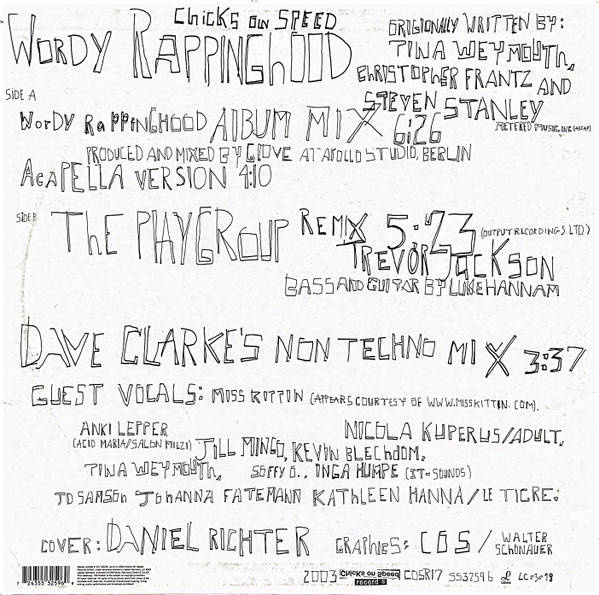 CHICKS ON SPEED
WORDY RAPPINGHOOD
ORIGIONALLY WRITTEN BY:
TINA WEYMOUTH,
CHRISTOPHER FRANTZ AND
STEVEN STANLEY
METERED MUSIC, INC (ASCAP)
SIDE A
WORDY RAPPINGHOOD ALBUM MIX 6:26
PRODUCED AND MIXED BY GIOVE AT APOLLO STUDIO, BERLIN
ACAPELLA VERSION 4:10
SIDE B THE PLAYGROUP REMIX 5:23 (OUTPUT RECORDINGS LTD.)
TREVOR JACKSON
BASS AND GUITAR BY LUKE HANNAM
DAVE CLARKE'S NON TECHNO MIX 3:37
GUEST VOCALS: MISS KITTIN (APPEARS COURTESY OF WWW.MISSKITTIN.COM).
ANKI LEPPER
(ACID MARIA/SALON MIEZI)
JILL MINGO, KEVIN BLECHDOM,
NICOLA KUPERUS/ADULT,
TINA WEYMOUTH, SOFFY O., INGA HUMPE (IT-SOUNDS)
JD SAMSON JOHANNA FATEMAN KATHLEEN HANNA/LE TIGRE.
COVER: DANIEL RICHTER GRAPHICS: COS / WALTER
SCHÖNAUER
7 24355 32596
2003 Chicks on Speed
records
COSR17 5532596 LC 03098